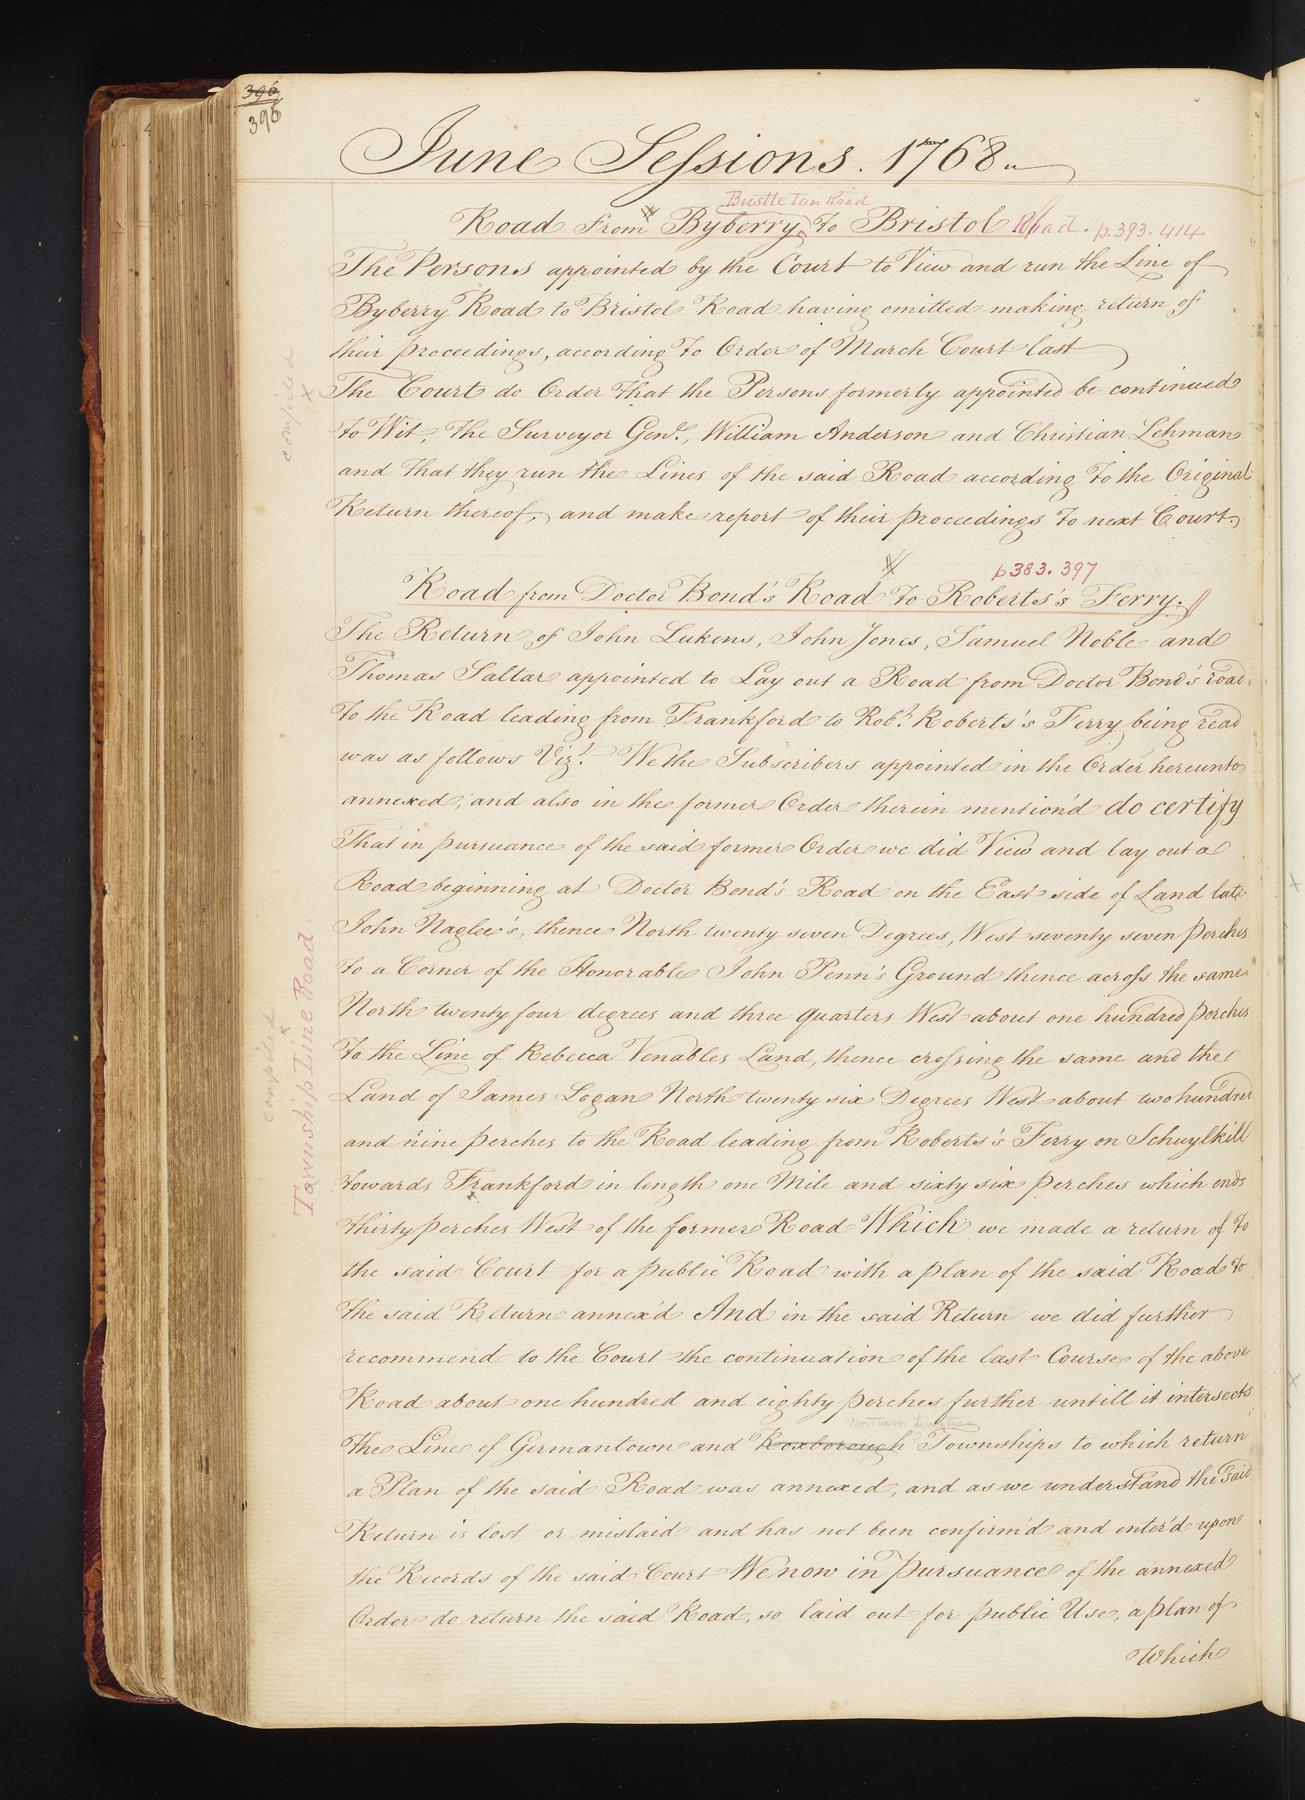 396
398
June Sessions. 1768
Bustleton Road
Road From Byberry to Bristol Road. p. 393. 414
The Persons appointed by the Court to View and run the Line of
Byberry Road to Bristol Road having omitted making return of
their proceedings, according to Order of March Court last
The Court do Order that the Persons formerly appointed be continued
to Wit, the Surveyor Genl., William Anderson and Christian Lehman
and that they run the Lines of the said Road according to the Original
Return thereof, and make report of their proceedings to next Court.
compiled
x
p 383. 397
Road from Doctor Bond's Road to Roberts's Ferry.
The Return of John Lukens, John Jones, Samuel Noble and
Thomas Saltar appointed to Lay out a Road from Doctor Bond's road
to the Road leading from Frankford to Robt. Roberts's Ferry being read
was as follows Vizt. We the Subscribers appointed in the Order hereunto
annexed, and also in the former Order therein mention'd do certify
That in pursuance of the said former Order we did View and lay out a
Road beginning at Doctor Bond's Road on the East side of Land late
John Naglee's, thence North twenty seven Degrees, West seventy seven perches
to a Corner of the Honorable John Penn's Ground thence across the same
North twenty four degrees and three quarters West about one hundred perches
to the Line of Rebecca Venables Land, thence crossing the same and the
Land of James Logan North twenty six Degrees West about two hundred
and nine perches to the Road leading from Roberts's Ferry on Schuylkill
towards Frankford in length one Mile and sixty six perches which ends
thirty perches West of the former Road Which we made a return of to
the said Court for a public Road with a plan of the said Road to
the said Return annex'd And in the said Return we did further
recommend to the Court the continuation of the last Course of the above
Road about one hundred and eighty perches further untill it intersects
Northern Liberties
the Line of Germantown and Roxborough Townships to which return
a Plan of the said Road was annexed, and as we understand the said
Return is lost or mislaid and has not been confirm'd and enter'd upon
the Records of the said Court We now in pursuance of the annexed
Order do return the said Road, so laid out for public Use, a plan of
Which
Township Line Road
compiled
x